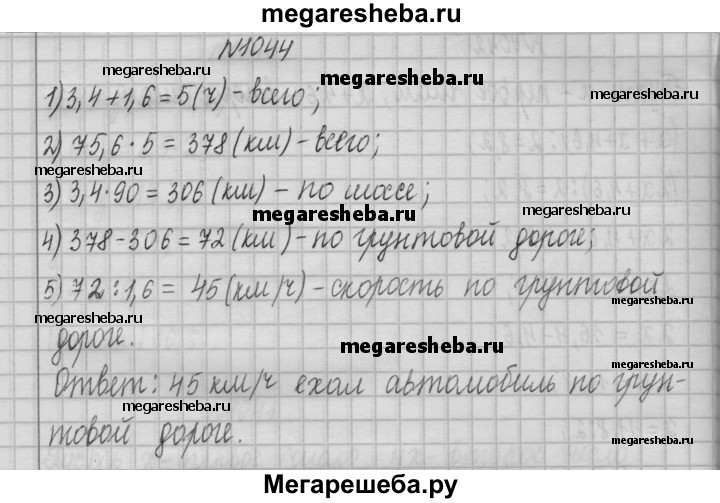 megaresheba.ru
№1044
megaresheba.ru
megaresheba.ru
1) 3,4+1,6=5(ч)-всего;
megaresheba.ru
2) 75,6·5=378(км)-всего;
megaresheba.ru
3) 3,4·90=306(км)-по шоссе;
megaresheba.ru
megaresheba.ru
4) 378-306=72(км)-по грунтовой дороге;
5) 72:1,6= 45(км/ч)-скорость по грунтовой
megaresheba.ru
дороге.
megaresheba.ru
megaresheba.ru
Ответ: 45 км/ч ехал автомобиль по грун-
megaresheba.ru
товой дороге.
Мегарешеба.ру